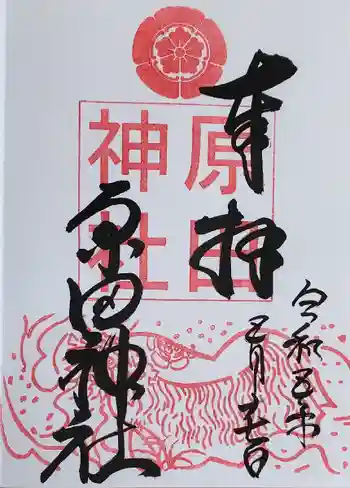 奉拝
令和五年
月 日
原田
神社
原田神社